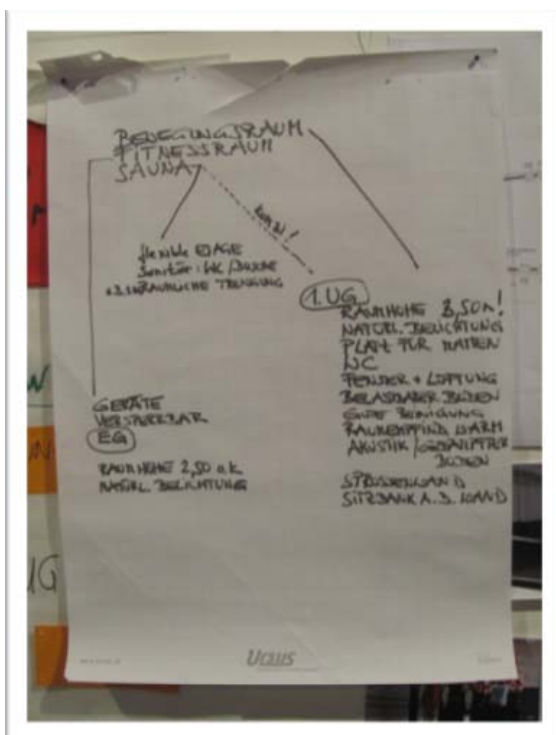 BEWEGUNGSRAUM
FITNESSRAUM
SAUNA
flexible ETAGE
Sanitär: WC /
RÄUMLICHE TRENNUNG
1. UG
RAUMHÖHE 3,50m!
NATÜRL. BELICHTUNG
PLATZ FÜR MATTEN
WC
FENSTER + LÜFTUNG
BELASTBARER BODEN
GUTE REINIGUNG
RAUMEMPFIND. WARM
AKUSTIK / GEDÄMPFTER
BODEN
SPROSSENWAND
SITZBANK A. D. WAND
GERÄTE
VERSPERRBAR
EG
RAUMHÖHE 2,50 o.k.
NATÜRL. BELICHTUNG
UG